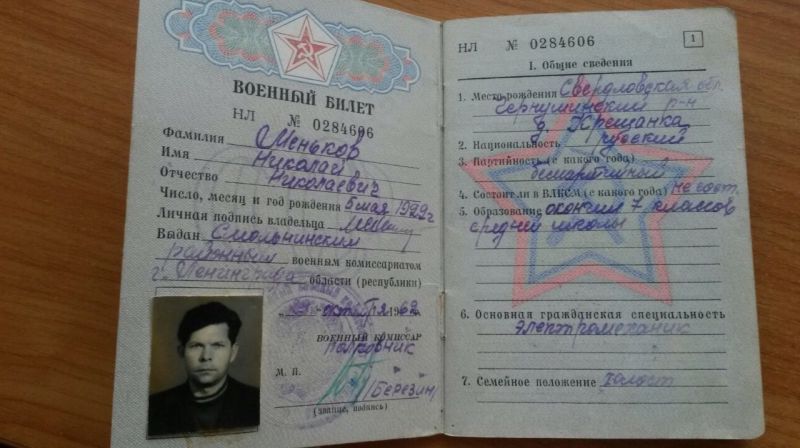 ВОЕННЫЙ БИЛЕТ
НЛ № 0284606
Фамилия Меньков
Имя Николай
Отчество Николаевич
Число, месяц и год рождения 5 мая 1929 г
Личная подпись владельца
Выдан Смольнинским
районным военным комиссариатом
г. Ленинграда области (республики)
октября 1962
ВОЕННЫЙ КОМИССАР
полковник
М. П.
/Березин/
(звание, подпись)
НЛ № 0284606
1
I. Общие сведения
1. Место рождения Свердловская обл.
р-н
д. Хрещанка
2. Национальность русский
3. Партийность (с какого года)
беспартийный
4. Состоял ли в ВЛКСМ (с какого года) не сост.
5. Образование окончил 7 классов
средней школы
6. Основная гражданская специальность
электромеханик
7. Семейное положение холост